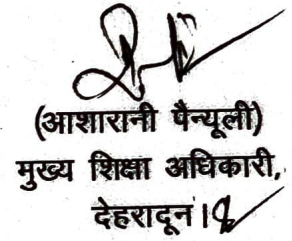 (आशारानी पैन्यूली)
मुख्य शिक्षा अधिकारी,
देहरादून।